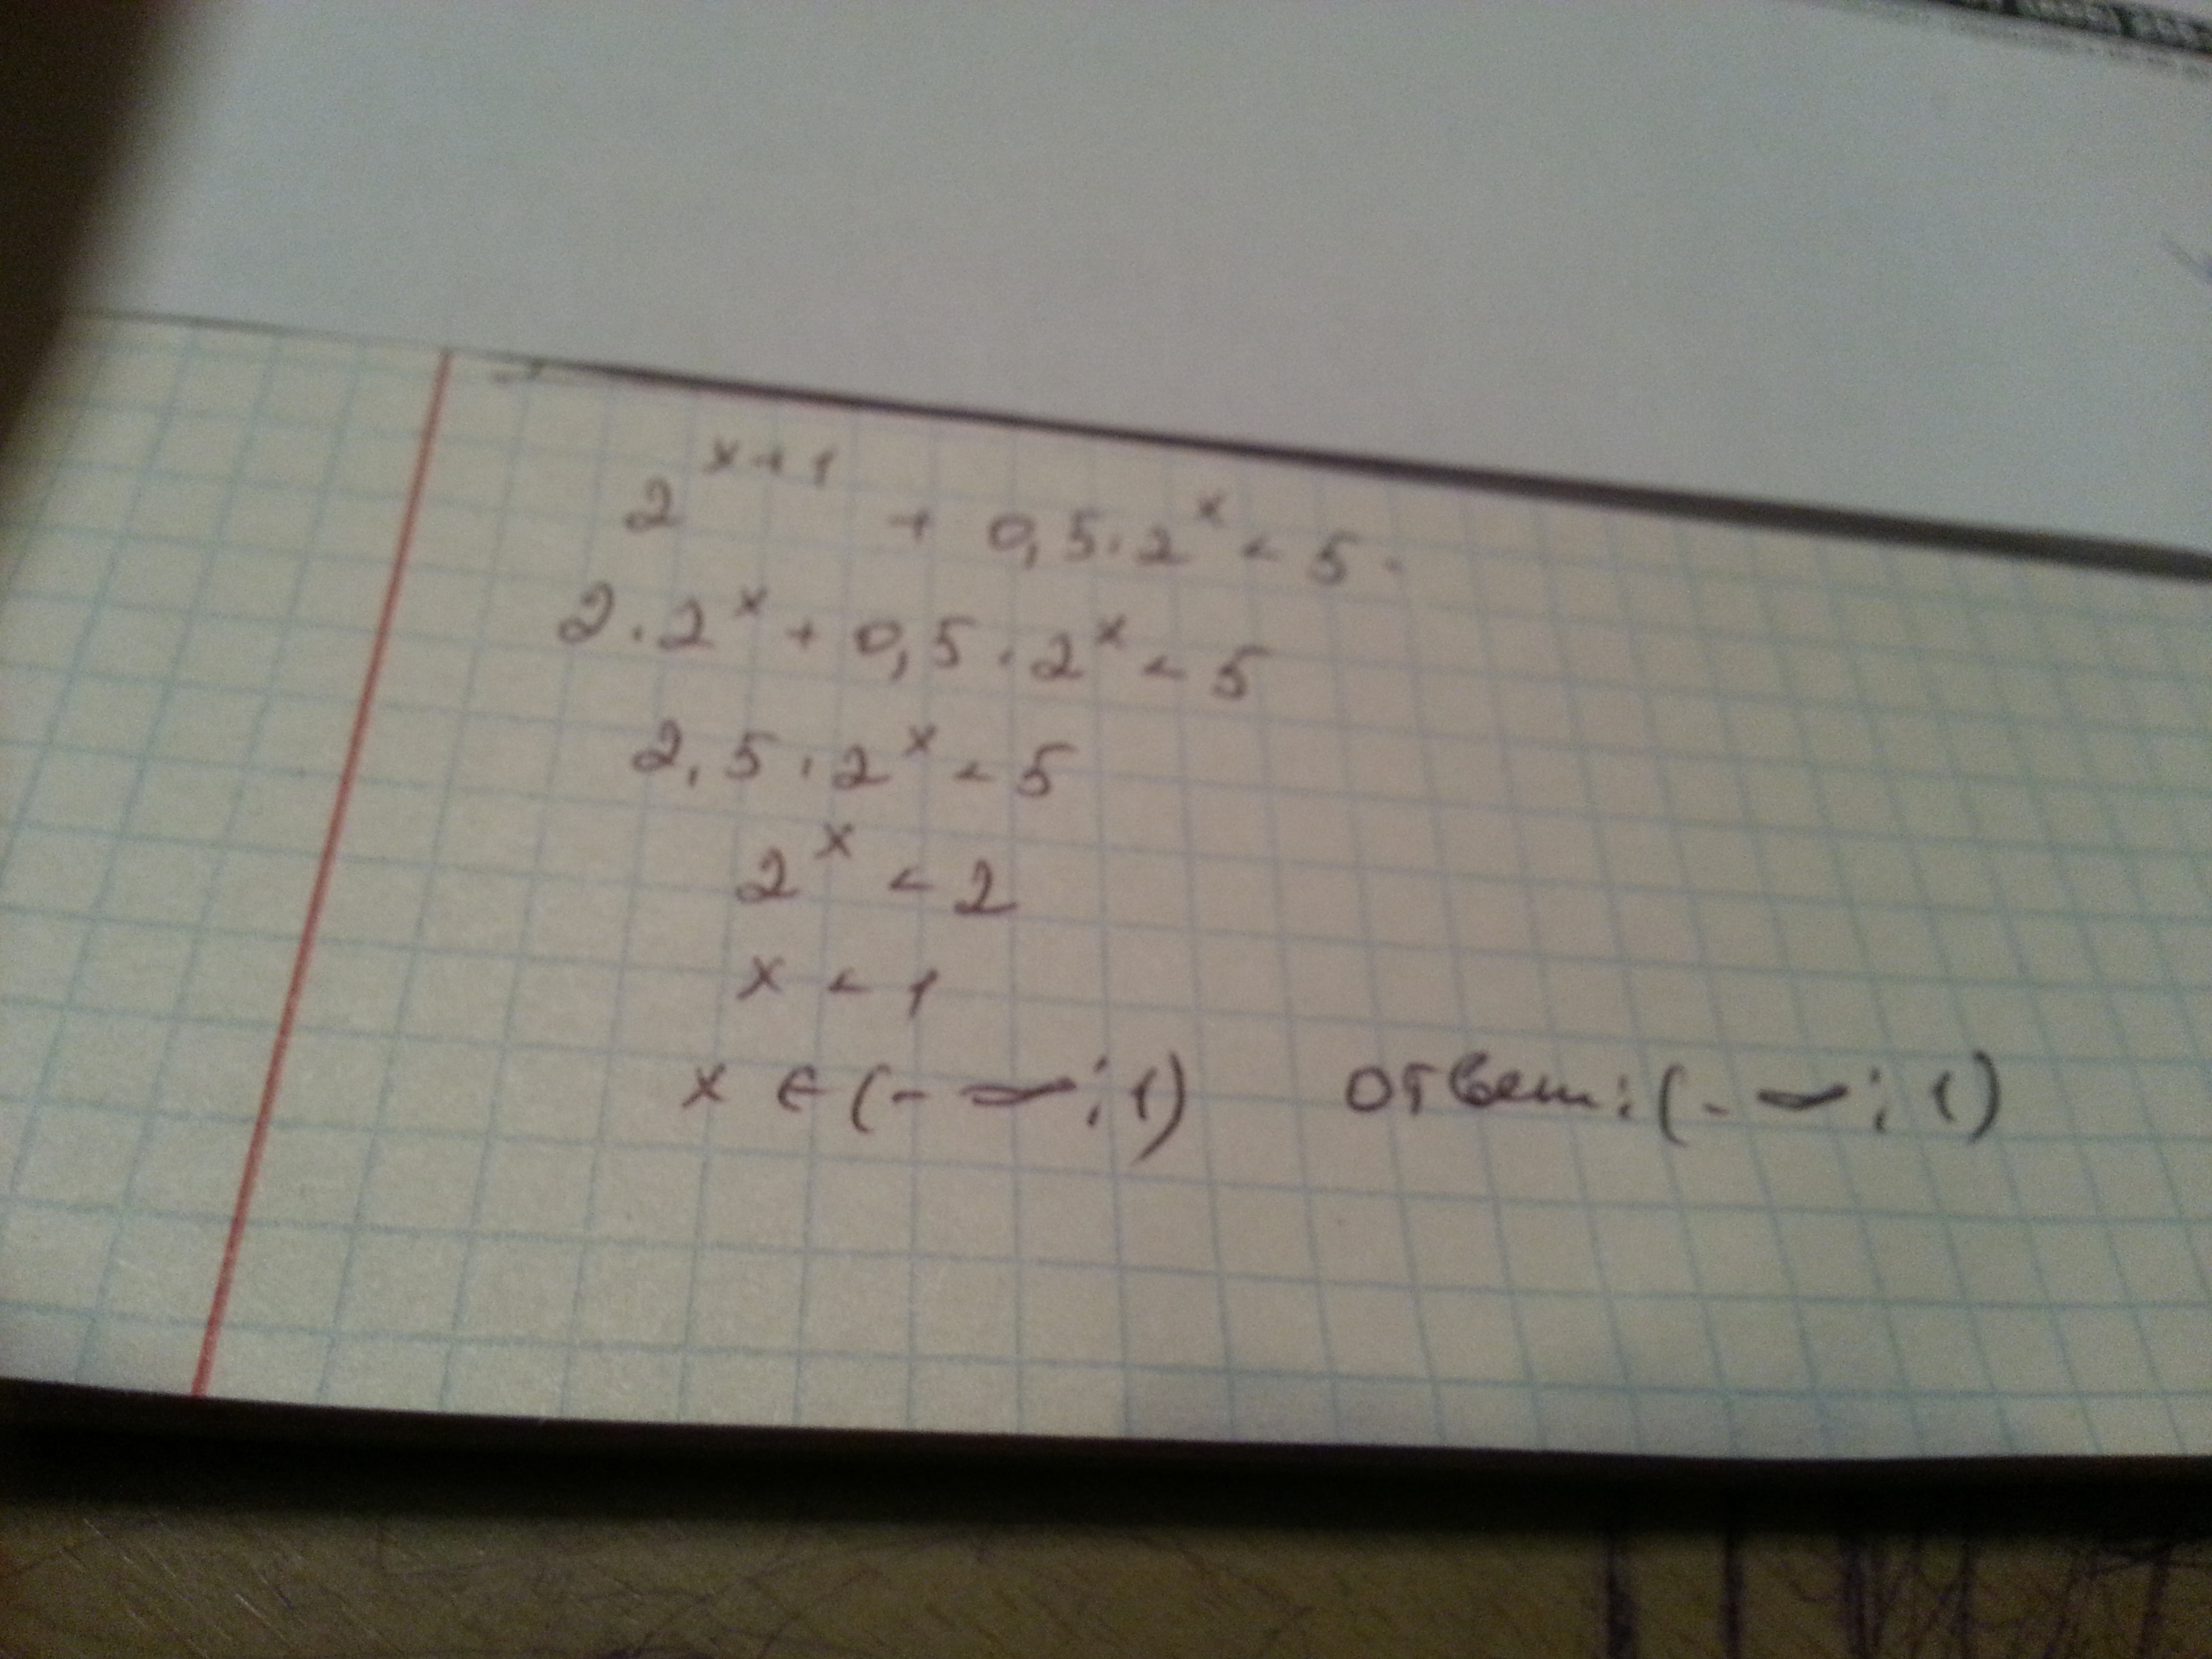 2^{x+1} + 0,5·2^x < 5.
2·2^x + 0,5·2^x < 5
2,5·2^x < 5
2^x < 2
x < 1
x ∈ (-∞; 1) Ответ: (-∞; 1)